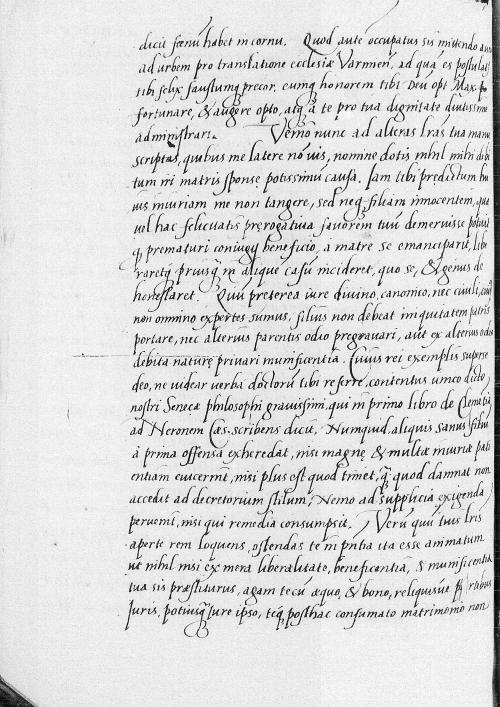 dicū fœnū habet in cornu. Quod ante occupatus sis mittendo
ad urbem pro translatione ecclesiæ Varmeń, ad quā es postulat,
tibi felix faustumq precor, eumq honorem tibi Deū opt. Max.
fortunare, & augere opto, atq ā te pro tua dignitate diutissime
administrari. Verūm nunc ad alteras lrās tua manu
scriptas, quibus me latere nō uis, nomine dotis nihil mihi debi
tum ni matris sponsæ potissimū causa. Iam tibi prędictum
uis iniuriam me non tangere, sed neq filiam innocentem, quæ
uel hac felicitatis prerogatiua fauorem tuū demeruisse potuit
q prematuri coniugij beneficio, a matre se emanciparit, libe
raretq priusq in aliquē casū incideret, quo se, & genus de
honestaret. Quū preterea iure diuino, canonico, nec ciuili,
non omnino expertes sumus, filius non debeat iniquitatem patris
portare, nec alterius parentis odio pregrauari, aut ex alterius odio
debita naturę priuari munificentia. Cuius rei exemplis superse
deo, ne uidear uerba doctorū tibi referre, contentus unico dicto
nostri Senecæ philosophi grauissimi, qui in primo libro de Clemētia
ad Neronem Cæs. scribens dicit, Nunquid aliquis sanus filiū
à prima offensa exheredat, nisi magnę & multæ iniuriæ pati
entiam euicerint, nisi plus est quod timet, q quod damnat non
accedit ad decretorium stilum, Nemo ad supplicia exigenda
peruenit, nisi qui remedia consumpsit. Verū quū tuis lris
aperte rem loquens, ostendas te in pńtia ita esse animatum
ut nihil nisi ex mera liberalitate, beneficentia, & munificentia
tua sis præstiturus, agam tecū æquo, & bono, reliquisue
Iuris, potiusq Iure ipso, teq posthac consumato matrimonio non